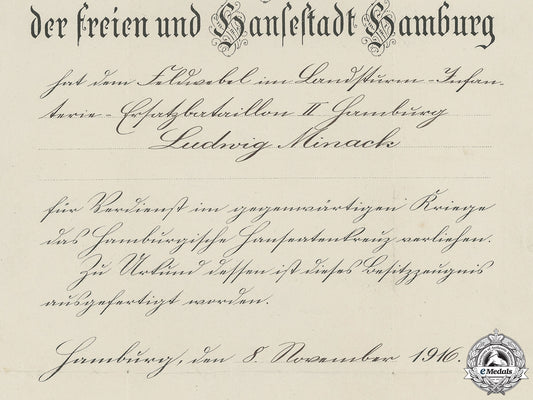 der freien und Hansestadt Hamburg
hat dem Feldwebel im Landsturm-Infan-
terie-Ersatzbataillon II Hamburg
Ludwig Minack
für Verdienst im gegenwärtigen Kriege
das Hamburgische Hanseatenkreuz verliehen.
Zu Urkund dessen ist dieses Besitzzeugnis
ausgefertigt worden.
Hamburg, den 8. November 1916.
eMedals